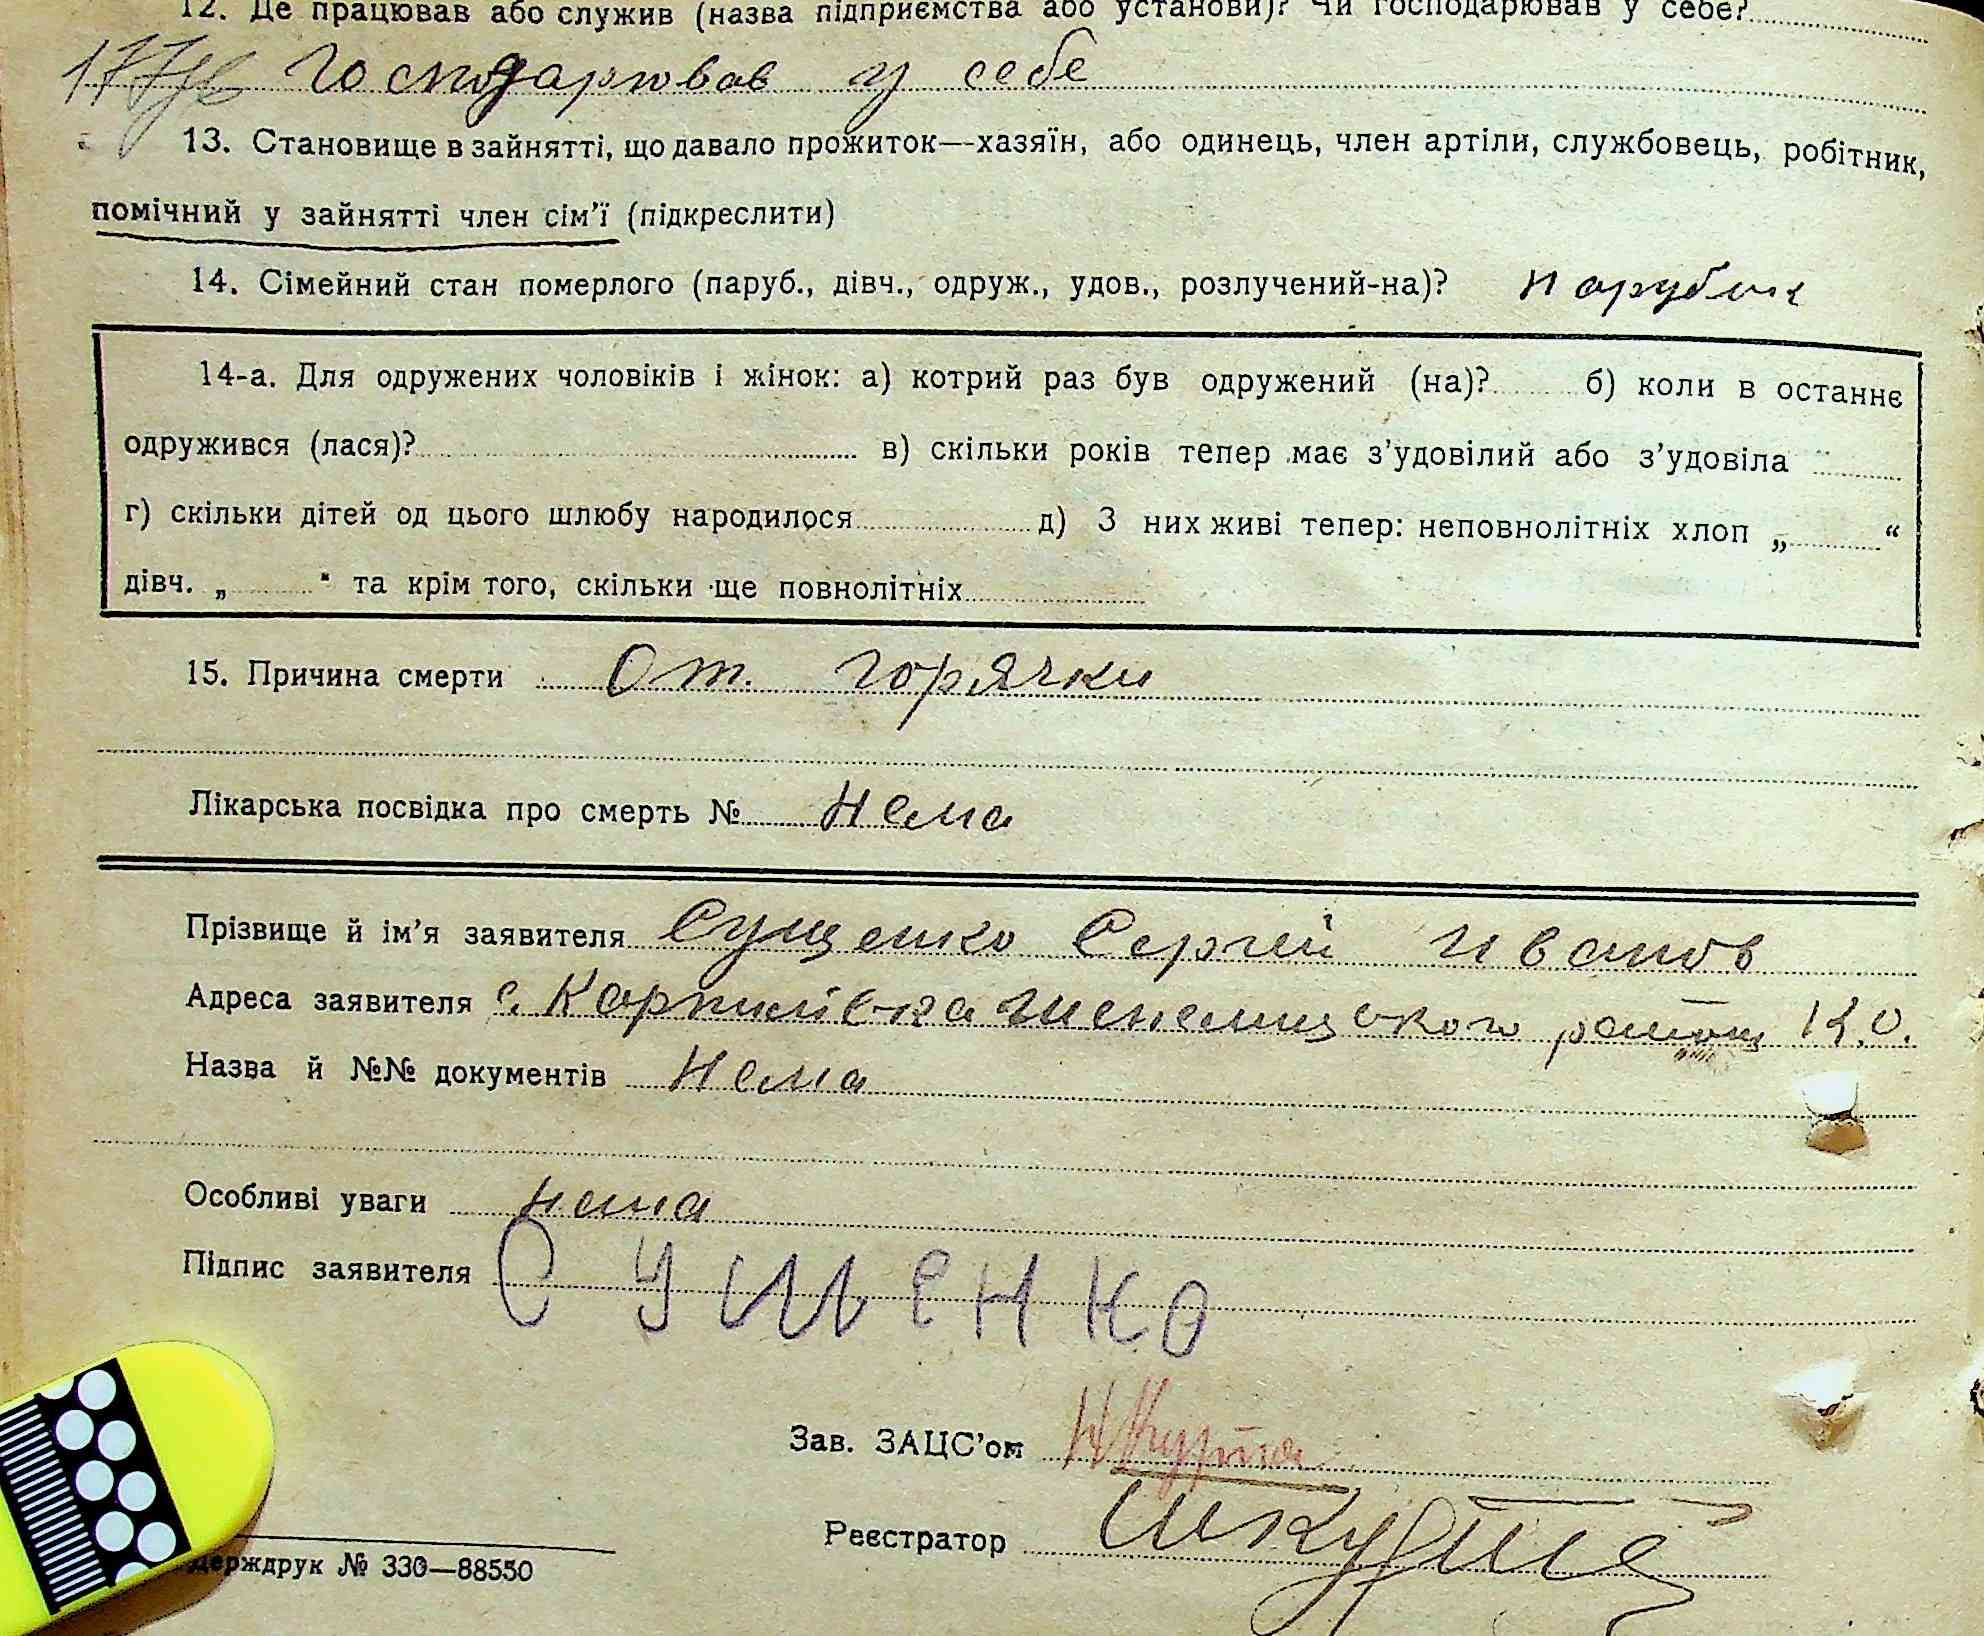 12. Де працював або служив (назва підприємства або установи)? Чи господарював у себе?
Господарював у себе
13. Становище в зайнятті, що давало прожиток—хазяїн, або одинець, член артіли, службовець, робітник,
помічний у зайнятті член сім'ї (підкреслити)
14. Сімейний стан померлого (паруб., дівч., одруж., удов., розлучений-на)? парубок
14-а. Для одружених чоловіків і жінок: а) котрий раз був одружений (на)? б) коли в останнє
одружився (лася)? в) скільки років тепер має з'удовілий або з'удовіла
г) скільки дітей од цього шлюбу народилося д) З них живі тепер: неповнолітніх хлоп „ “
дівч. „ “ та крім того, скільки ще повнолітніх
15. Причина смерти От горячки
Лікарська посвідка про смерть № Нема
Прізвище й ім'я заявителя Сущенко Сергій Иванов
Адреса заявителя с. Карпилівка району К.О.
Назва й №№ документів Нема
Особливі уваги нема
Підпис заявителя СУЩЕНКО
Зав. ЗАЦС'ом
Реєстратор
держдрук № 330—88550